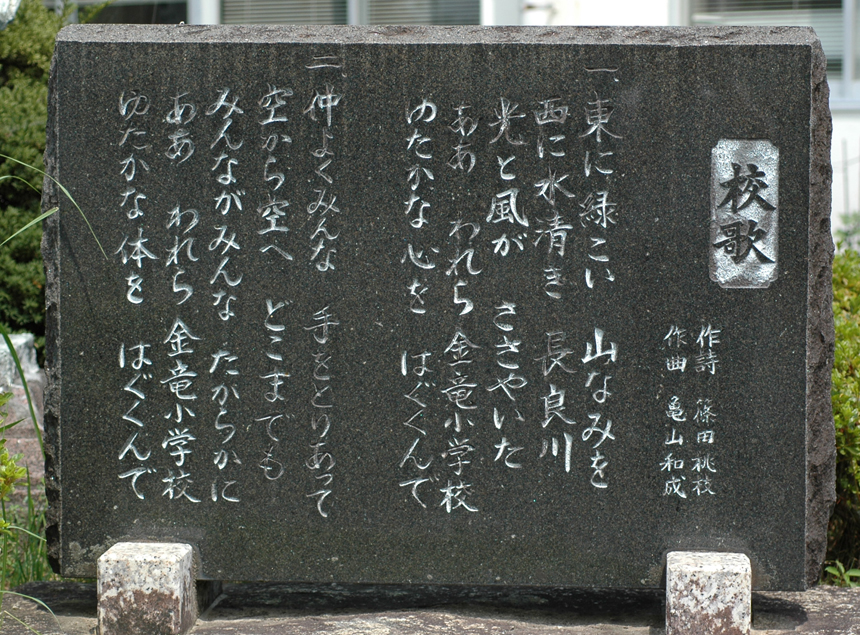 校歌
作詩 篠田桃枝
作曲 亀山和成
一、東に緑こい 山なみを
西に水清き 長良川
光と風が ささやいた
ああ われら金竜小学校
ゆたかな心を はぐくんで
二、仲よくみんな 手をとりあって
空から空へ どこまでも
みんながみんな たからかに
ああ われら金竜小学校
ゆたかな体を はぐくんで